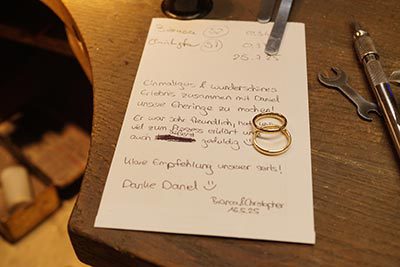 Bianca (52)
Christopher (57)
25.7.25
Einmaliges & wunderschönes
Erlebnis zusammen mit Daniel
unsere Eheringe zu machen!
Er war sehr freundlich, hat
viel zum Prozess erklärt
auch geduldig ☺
Klare Empfehlung unserer seits!
Danke Daniel ☺
Bianca & Christopher
16.5.25